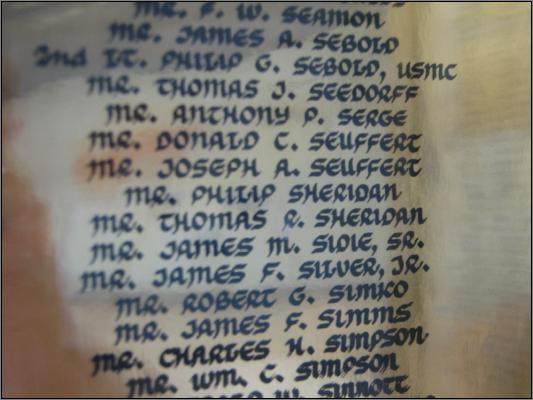 MR. F. W. SEAMON
MR. JAMES A. SEBOLD
2nd LT. PHILIP G. SEBOLD, USMC
MR. THOMAS J. SEEDORFF
MR. ANTHONY P. SERGE
MR. DONALD C. SEUFFERT
MR. JOSEPH A. SEUFFERT
MR. PHILIP SHERIDAN
MR. THOMAS R. SHERIDAN
MR. JAMES M. SIDIE, SR.
MR. JAMES F. SILVER, JR.
MR. ROBERT G. SIMKO
MR. JAMES F. SIMMS
MR. CHARLES H. SIMPSON
MR. WM. C. SIMPSON
W. SINNOTT